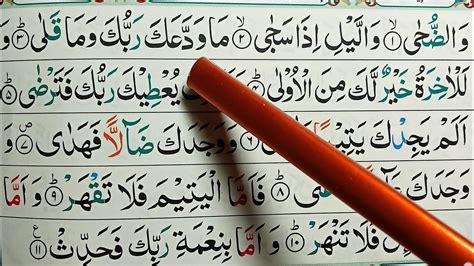 وَالضُّحٰى ۙ ١ وَالَّيْلِ اِذَا سَجٰى ۙ ٢ مَا وَدَّعَكَ رَبُّكَ وَمَا قَلٰى ؕ ٣ وَ
لَلْاٰخِرَةُ خَيْرٌ لَّكَ مِنَ الْاُوْلٰى ؕ ٤ يُعْطِيْكَ رَبُّكَ فَتَرْضٰى ؕ ٥
اَلَمْ يَجِدْكَ يَتِيْمًا ٦ وَوَجَدَكَ ضَآلًّا فَهَدٰى ۪ ٧
وَجَدَكَ ٨ فَاَمَّا الْيَتِيْمَ فَلَا تَقْهَرْ ؕ ٩ وَاَمَّا
فَلَا تَنْهَرْ ؕ ١٠ وَاَمَّا بِنِعْمَةِ رَبِّكَ فَحَدِّثْ ١١